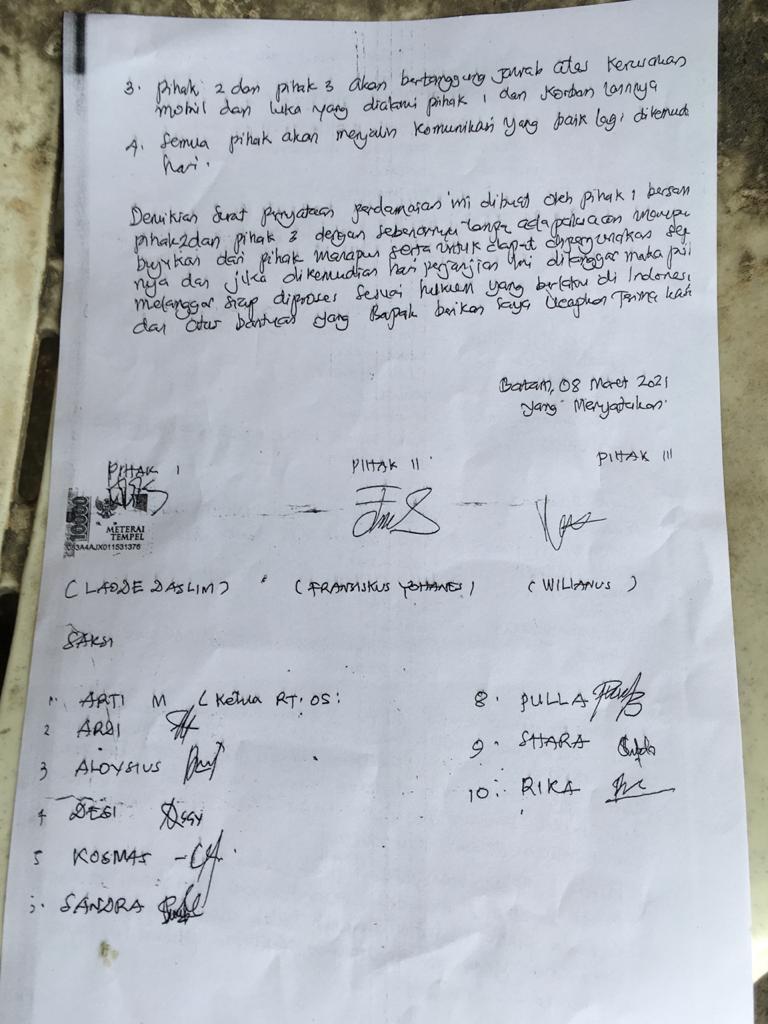 3. Pihak 2 dan pihak 3 akan bertanggung jawab atas kerusakan
mobil dan luka yang dialami pihak 1 dan korban lainnya
4. Semua pihak akan menjalin komunikasi yang baik lagi dikemudi
hari.
Demikian Surat pernyataan perdamaian ini dibuat oleh pihak 1 bersam
pihak 2 dan pihak 3 dengan sebenarnya tanpa ada paksaan maupu
bujukan dari pihak manapun serta untuk dapat dipergunakan seb
nya dan jika dikemudian hari perjanjian ini dilanggar maka pi
melanggar siap diproses sesuai hukum yang berlaku di Indones
dan atas bantuan yang Bapak berikan saya ucapkan Terima kasi
Batam, 08 Maret 2021
yang Menyatakan
PIHAK I
PIHAK II
PIHAK III
10000
METERAI
TEMPEL
63A4AJX011531376
(LAODE DASLIM)
(FRANSISKUS YOHANES)
(WILIANUS)
SAKSI
1. ARTI M (Ketua RT. 05:
2 ARDI
3 ALOYSIUS
4 DESI Desy
5 KOSMAS
SANDRA
8. PULLA
9. SHARA
10. RIKA